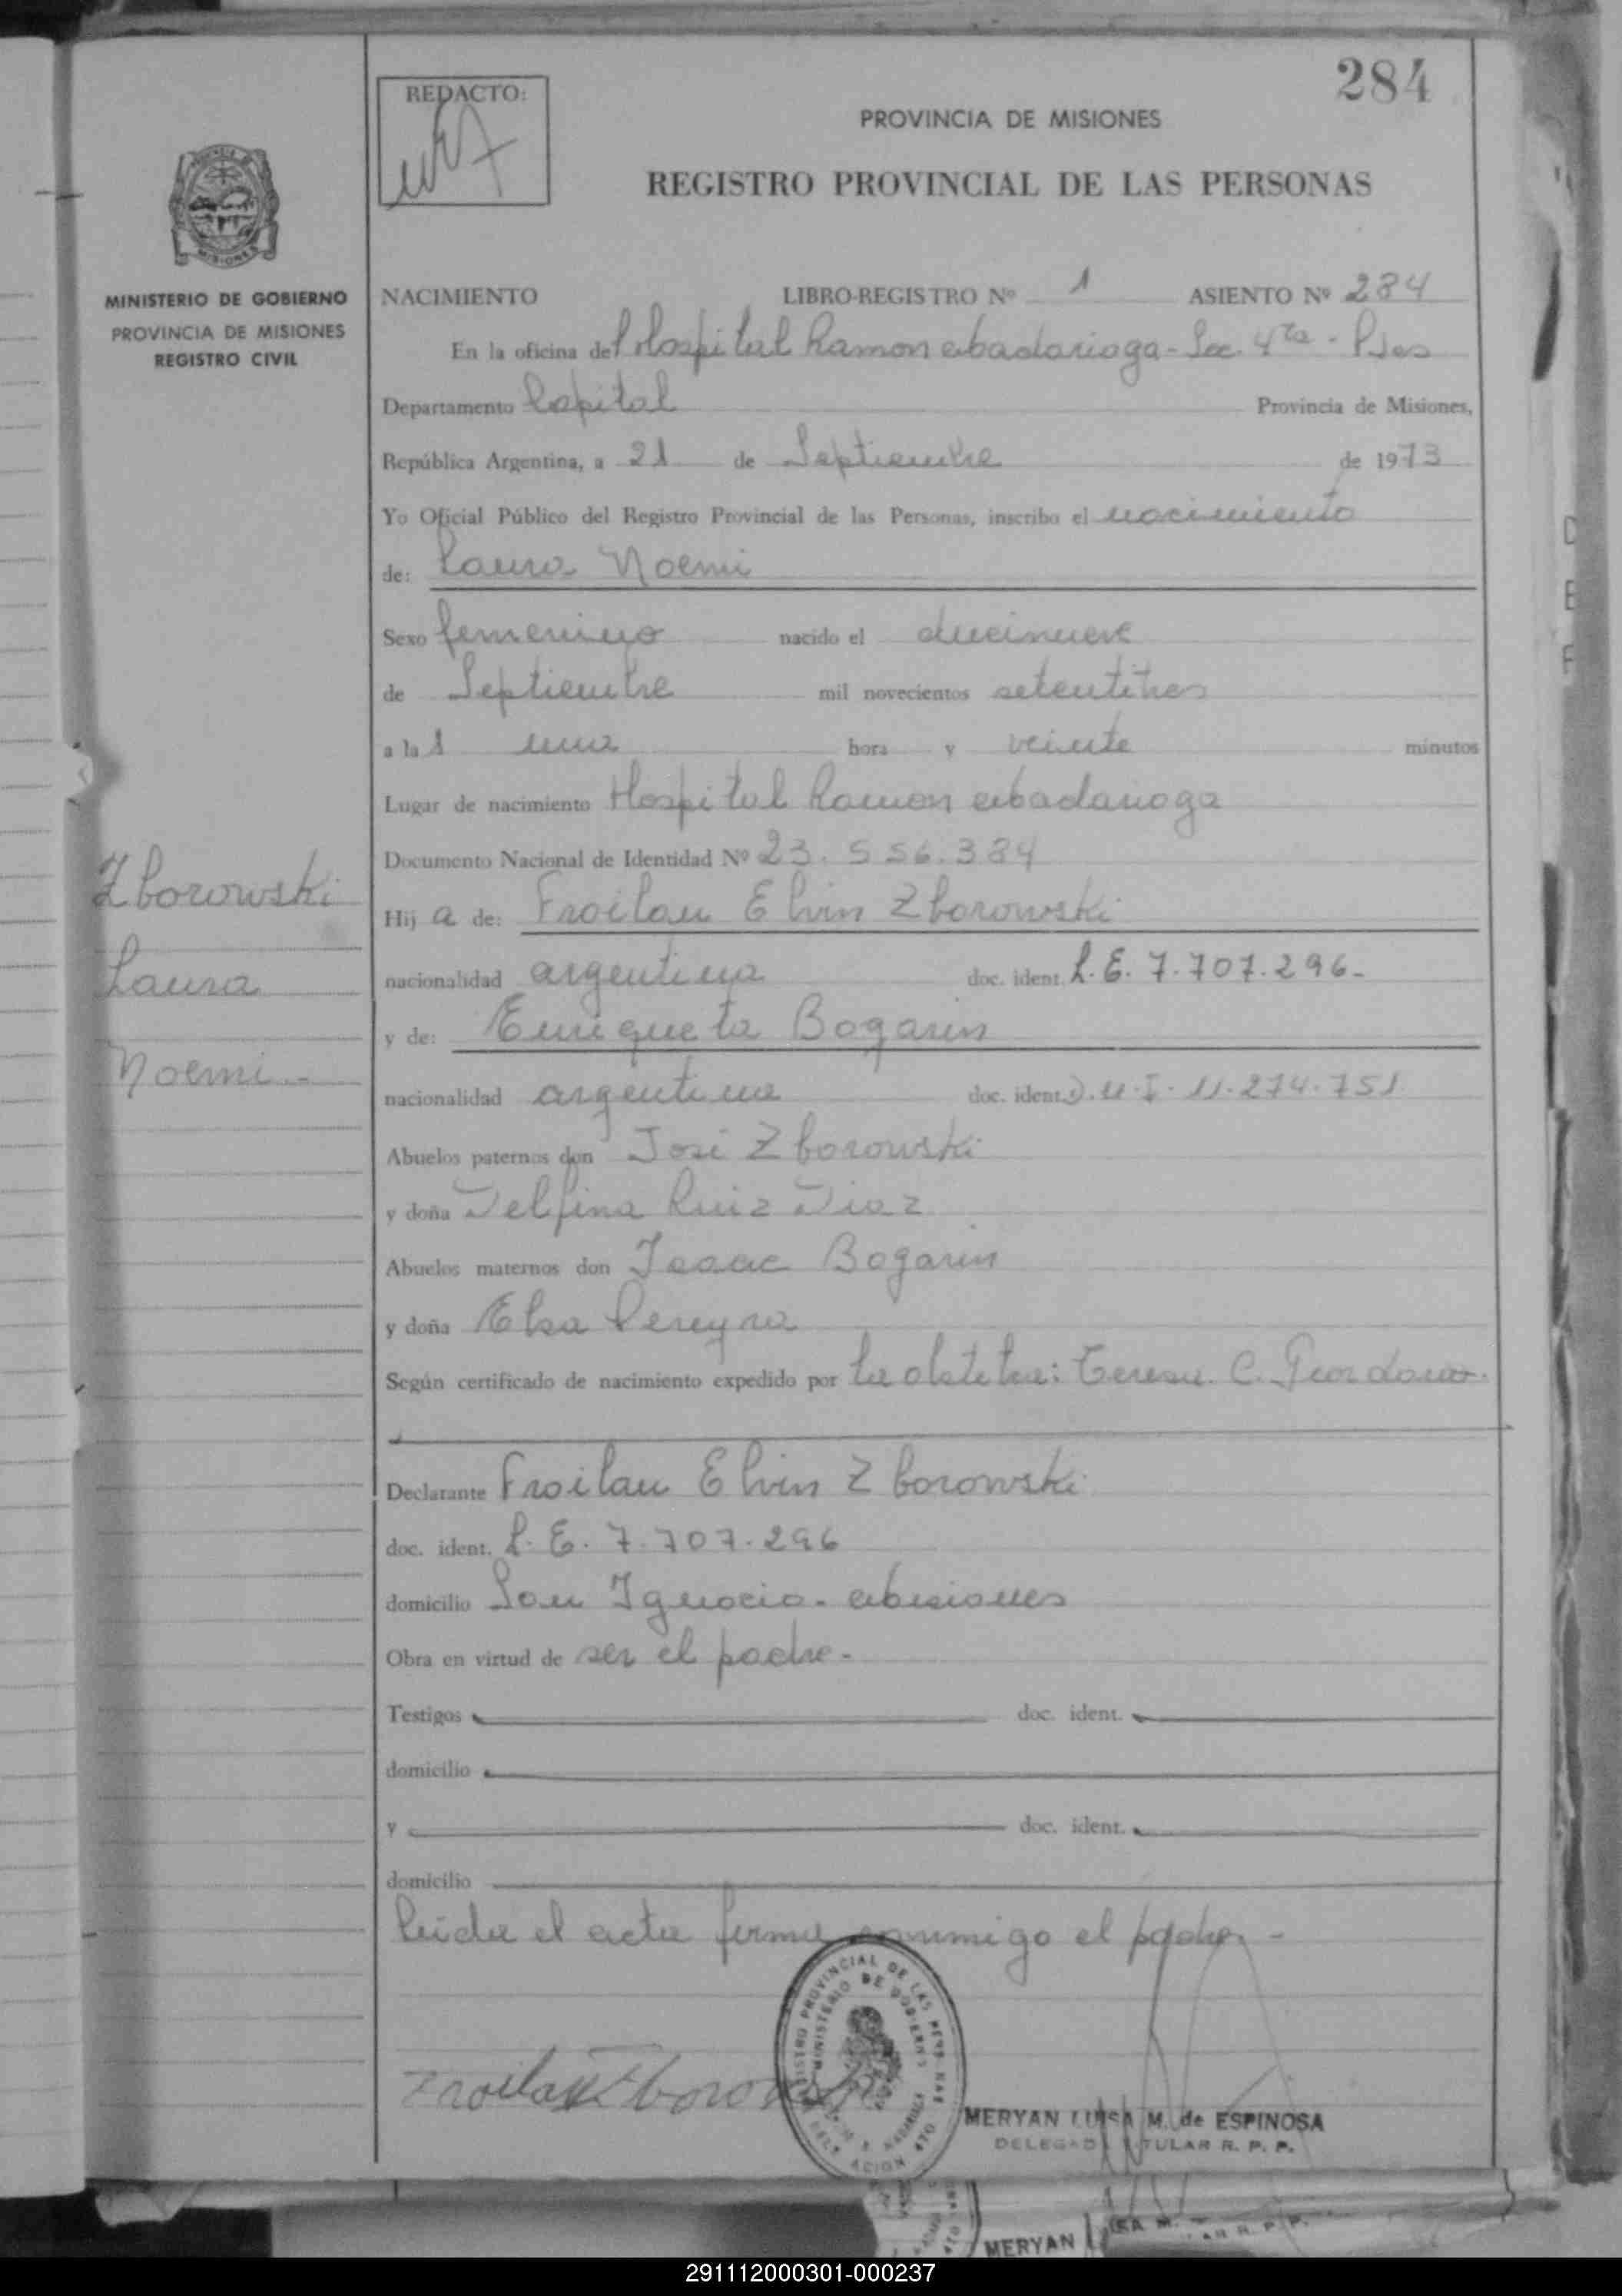 284
REDACTO:
PROVINCIA DE MISIONES
REGISTRO PROVINCIAL DE LAS PERSONAS
MINISTERIO DE GOBIERNO
PROVINCIA DE MISIONES
REGISTRO CIVIL
NACIMIENTO LIBRO-REGISTRO Nº 1 ASIENTO Nº 284
En la oficina del Hospital Ramon Madariaga - Sec. 4ta - Pdas
Departamento Capital Provincia de Misiones,
República Argentina, a 21 de Septiembre de 1973
Yo Oficial Público del Registro Provincial de las Personas, inscribo el nacimiento
de: Laura Noemi
Sexo femenino nacido el diecinueve
de Septiembre mil novecientos setentitres
a la 1 una hora y veinte minutos
Lugar de nacimiento Hospital Ramon Madariaga
Documento Nacional de Identidad Nº 23.556.384
Zborowski
Laura
Noemi.-
Hij a de: Froilan Elvin Zborowski
nacionalidad argentina doc. ident. L.E. 7.707.296-
y de: Enriqueta Bogarin
nacionalidad argentina doc. ident. D.N.I. 11.274.751
Abuelos paternos don José Zborowski
y doña Delfina Ruiz Diaz
Abuelos maternos don Isaac Bogarin
y doña Elsa Pereyra
Según certificado de nacimiento expedido por la obstetra: Teresa C. Giordano.
Declarante Froilan Elvin Zborowski
doc. ident. L.E. 7.707.296
domicilio San Ignacio - Misiones
Obra en virtud de ser el padre-
Testigos doc. ident.
domicilio
y doc. ident.
domicilio
Leida el acta firma conmigo el padre.-
Froilan Zborowski
REGISTRO PROVINCIAL DE LAS PERSONAS
MINISTERIO DE GOBIERNO
MERYAN LUISA M. de ESPINOSA
DELEGADA TITULAR R. P. P.
MERYAN
291112000301-000237